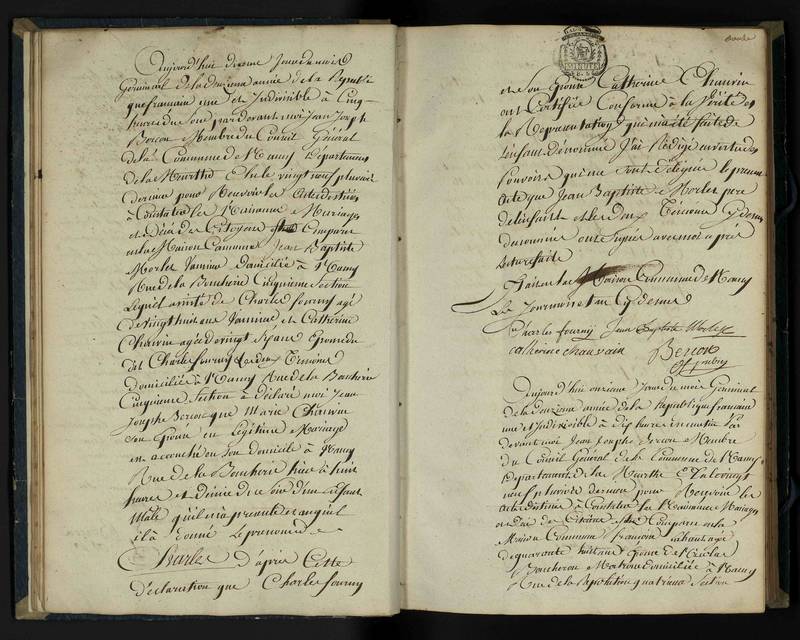 Aujourd'huie dixieme Jour du mois
Germinal de la deuxieme année de la Republi
que francaise une et Indivisible à Cinq
heures du soir pardevant moi Jean Joseph
Membre du Conseil Général
de la Commune de Nancy Departement
de la Meurthe Elu le vingt neuf pluviose
dernier pour Recevoir les Actes destinés
à Constater les Naissances Mariages
et Décès des Citoyens Comparu
en la Maison Commune Jean Baptiste
Morlet Vannier domicilié à Nancy
Rue de la Boucherie Cinquieme Section
Lequel assisté de Charles fourny agé
de vingt huit ans Vannier et Catherine
Chauvin agée de vingt ans Epouse du
dit Charles fourny Les deux Temoins
domiciliés à Nancy Rue de la Boucherie
Cinquieme Section à déclaré à moi Jean
Josephe que Marie Chauvin
son Epouse en Legitime Mariage
est accouchée en son domicile à Nancy
Rue de la Boucherie hier à huit
heures et demie du soir d'un Enfant
Male qu'il m'a presenté et auquel
il à donné le prenom de
Charles d'après Cette
déclaration que Charles fourny
et Son Epouse Catherine Chauvin
ont Certifiée Conforme à la Vérité et
la Représentation qui m'a été faite de
l'Enfant dénommé J'ai Rédigé en vertu des
Pouvoirs qui me sont délégués le present
Acte que Jean Baptiste Morlet pere
de l'Enfant et les deux Témoins Cy dessus
ont Signé avec moi après
Lecture faite
fait en la Maison Commune de Nancy
Le Jour mois et an Cy dessus
Charles fourny Jean Baptiste Morlet
catherine chauvain
Aujourd'hui onzieme Jour du mois Germinal
de la deuxieme année de la Republique francaise
une et Indivisible à dix heures
devant moi Jean Joseph Membre
du Conseil Général de la Commune de Nancy
Departement de la Meurthe Elu le vingt
neuf pluviose dernier pour Recevoir les
Actes destinés à Constater les Naissances Mariages
et Décès des Citoyens Comparu en la
Maison Commune françoise agée
de quarante huit ans Epouse de Nicolas
Boucheron domiciliée à Nancy
Rue de la quatrieme Section